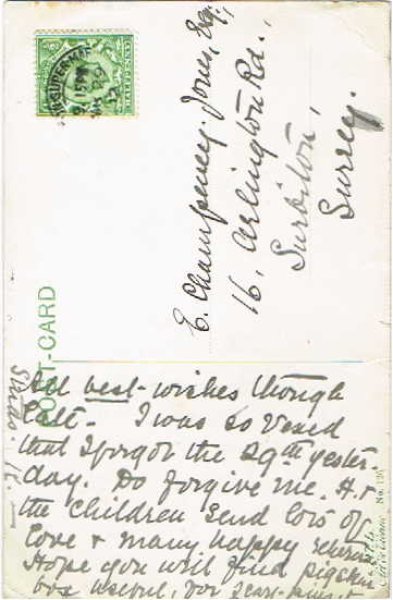 E. Champeney Jones, Esq.,
16, Arlington Rd.,
Surbiton,
Surrey.
POST-CARD
All best-wishes though
late. I was so vexed
that I forgot the 29th yester-
day. Do forgive me. H. &
the children send lots of
love & many happy returns
Hope you will find
useful, for